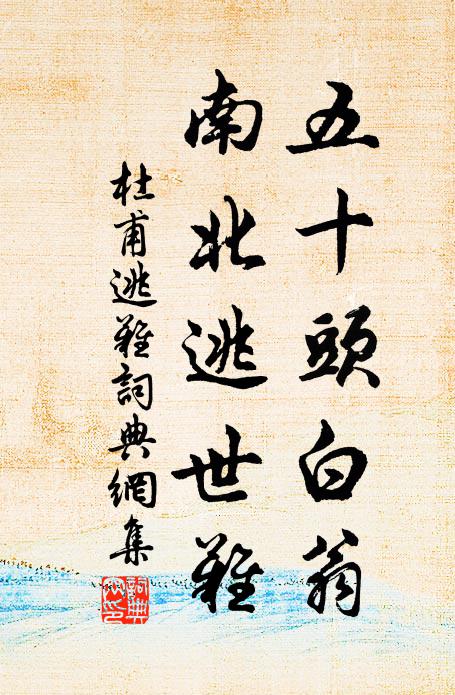 五十頭白翁
南北逃世難
杜甫逃難詞典網集